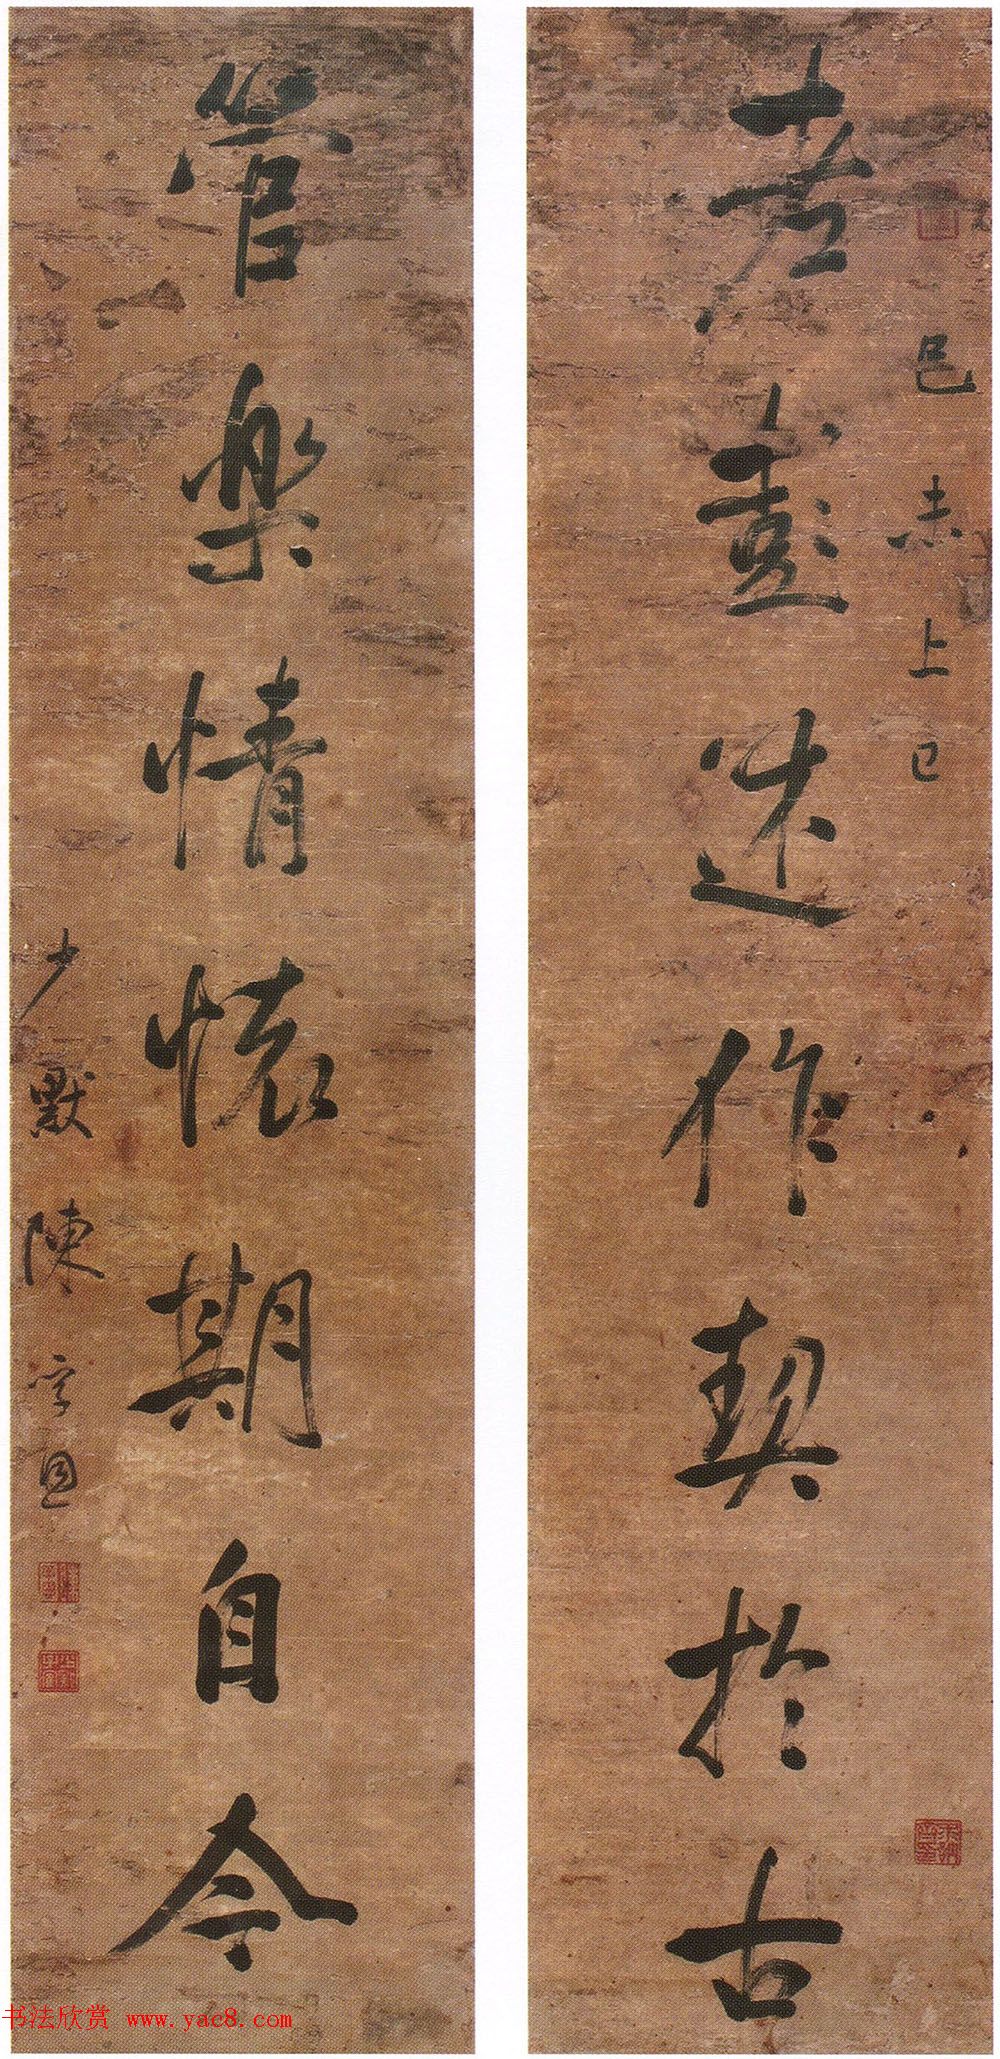 老彭述作契於古
己未上巳
管樂情懷期自今
少默陳孚恩
书法欣赏 www.yac8.com